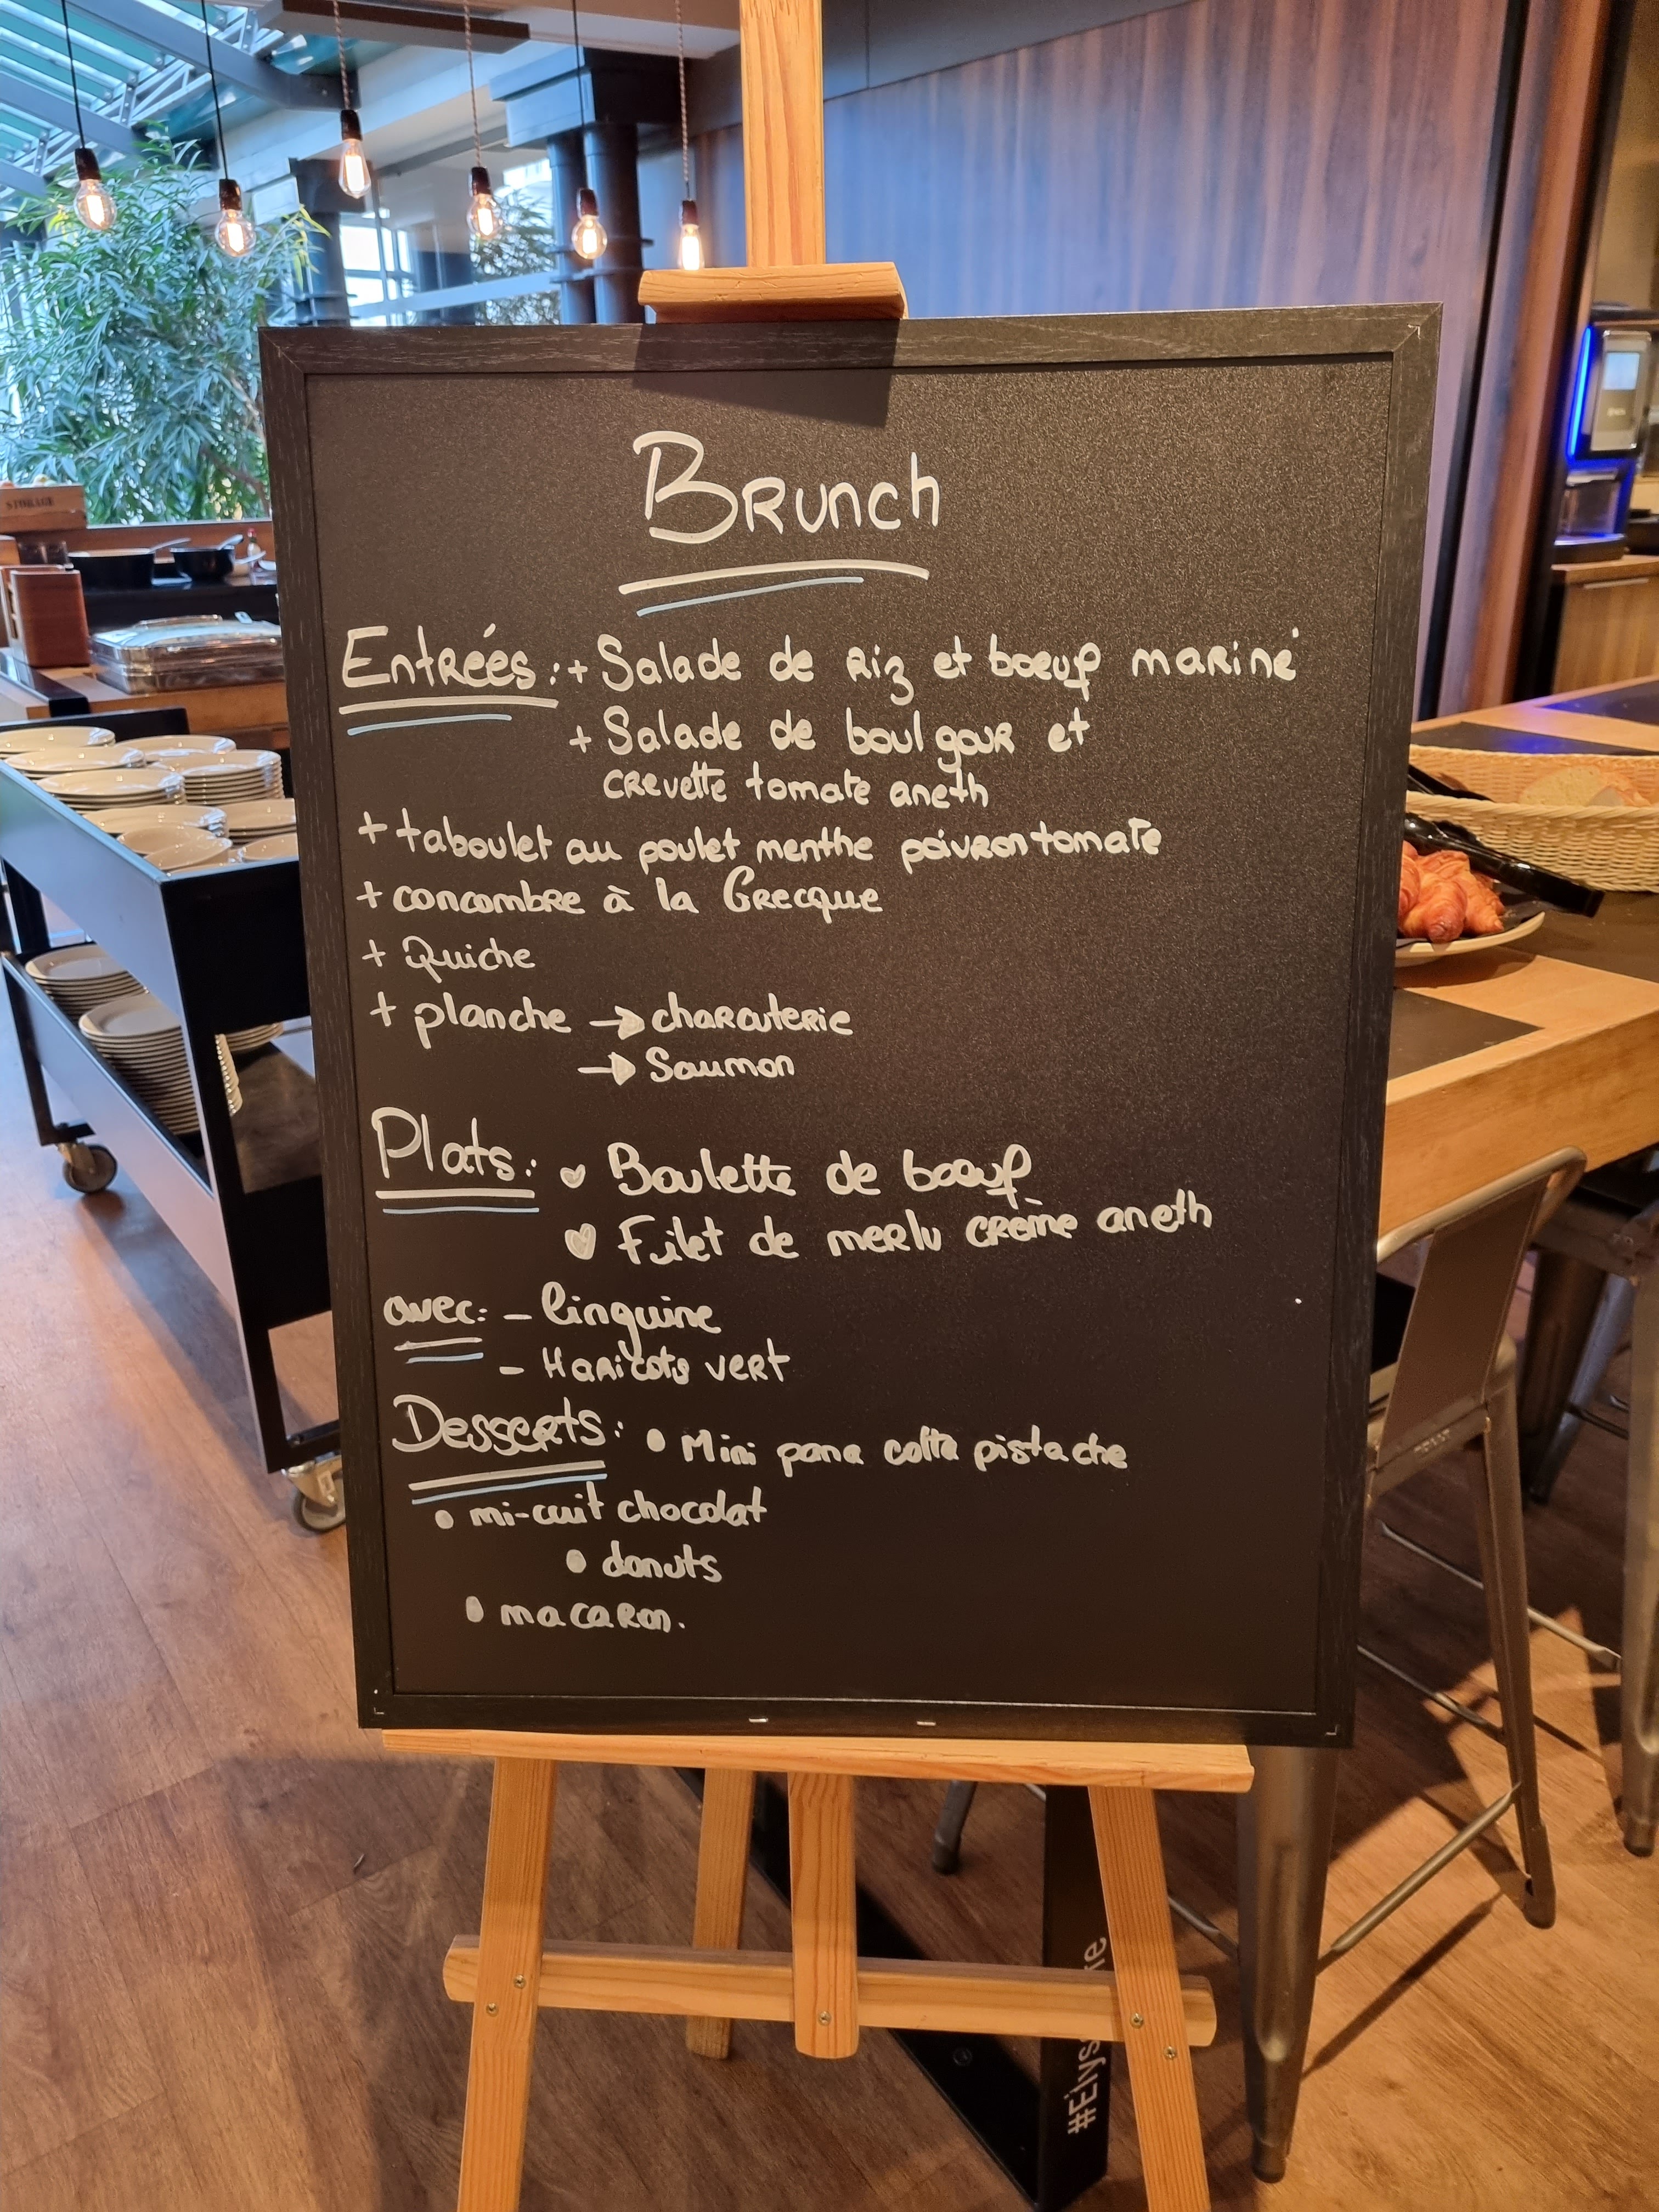 STORAGE
Brunch
Entrées : + Salade de Riz et bœuf mariné
+ Salade de boulgour et
crevette tomate aneth
+ taboulet au poulet menthe poivron tomate
+ concombre à la Grecque
+ Quiche
+ planche → charcuterie
→ Saumon
Plats : Boulette de bœuf
Filet de merlu crème aneth
avec : - linguine
- Haricots vert
Desserts : • Mini pana cotta pistache
• mi-cuit chocolat
• donuts
• macaron.